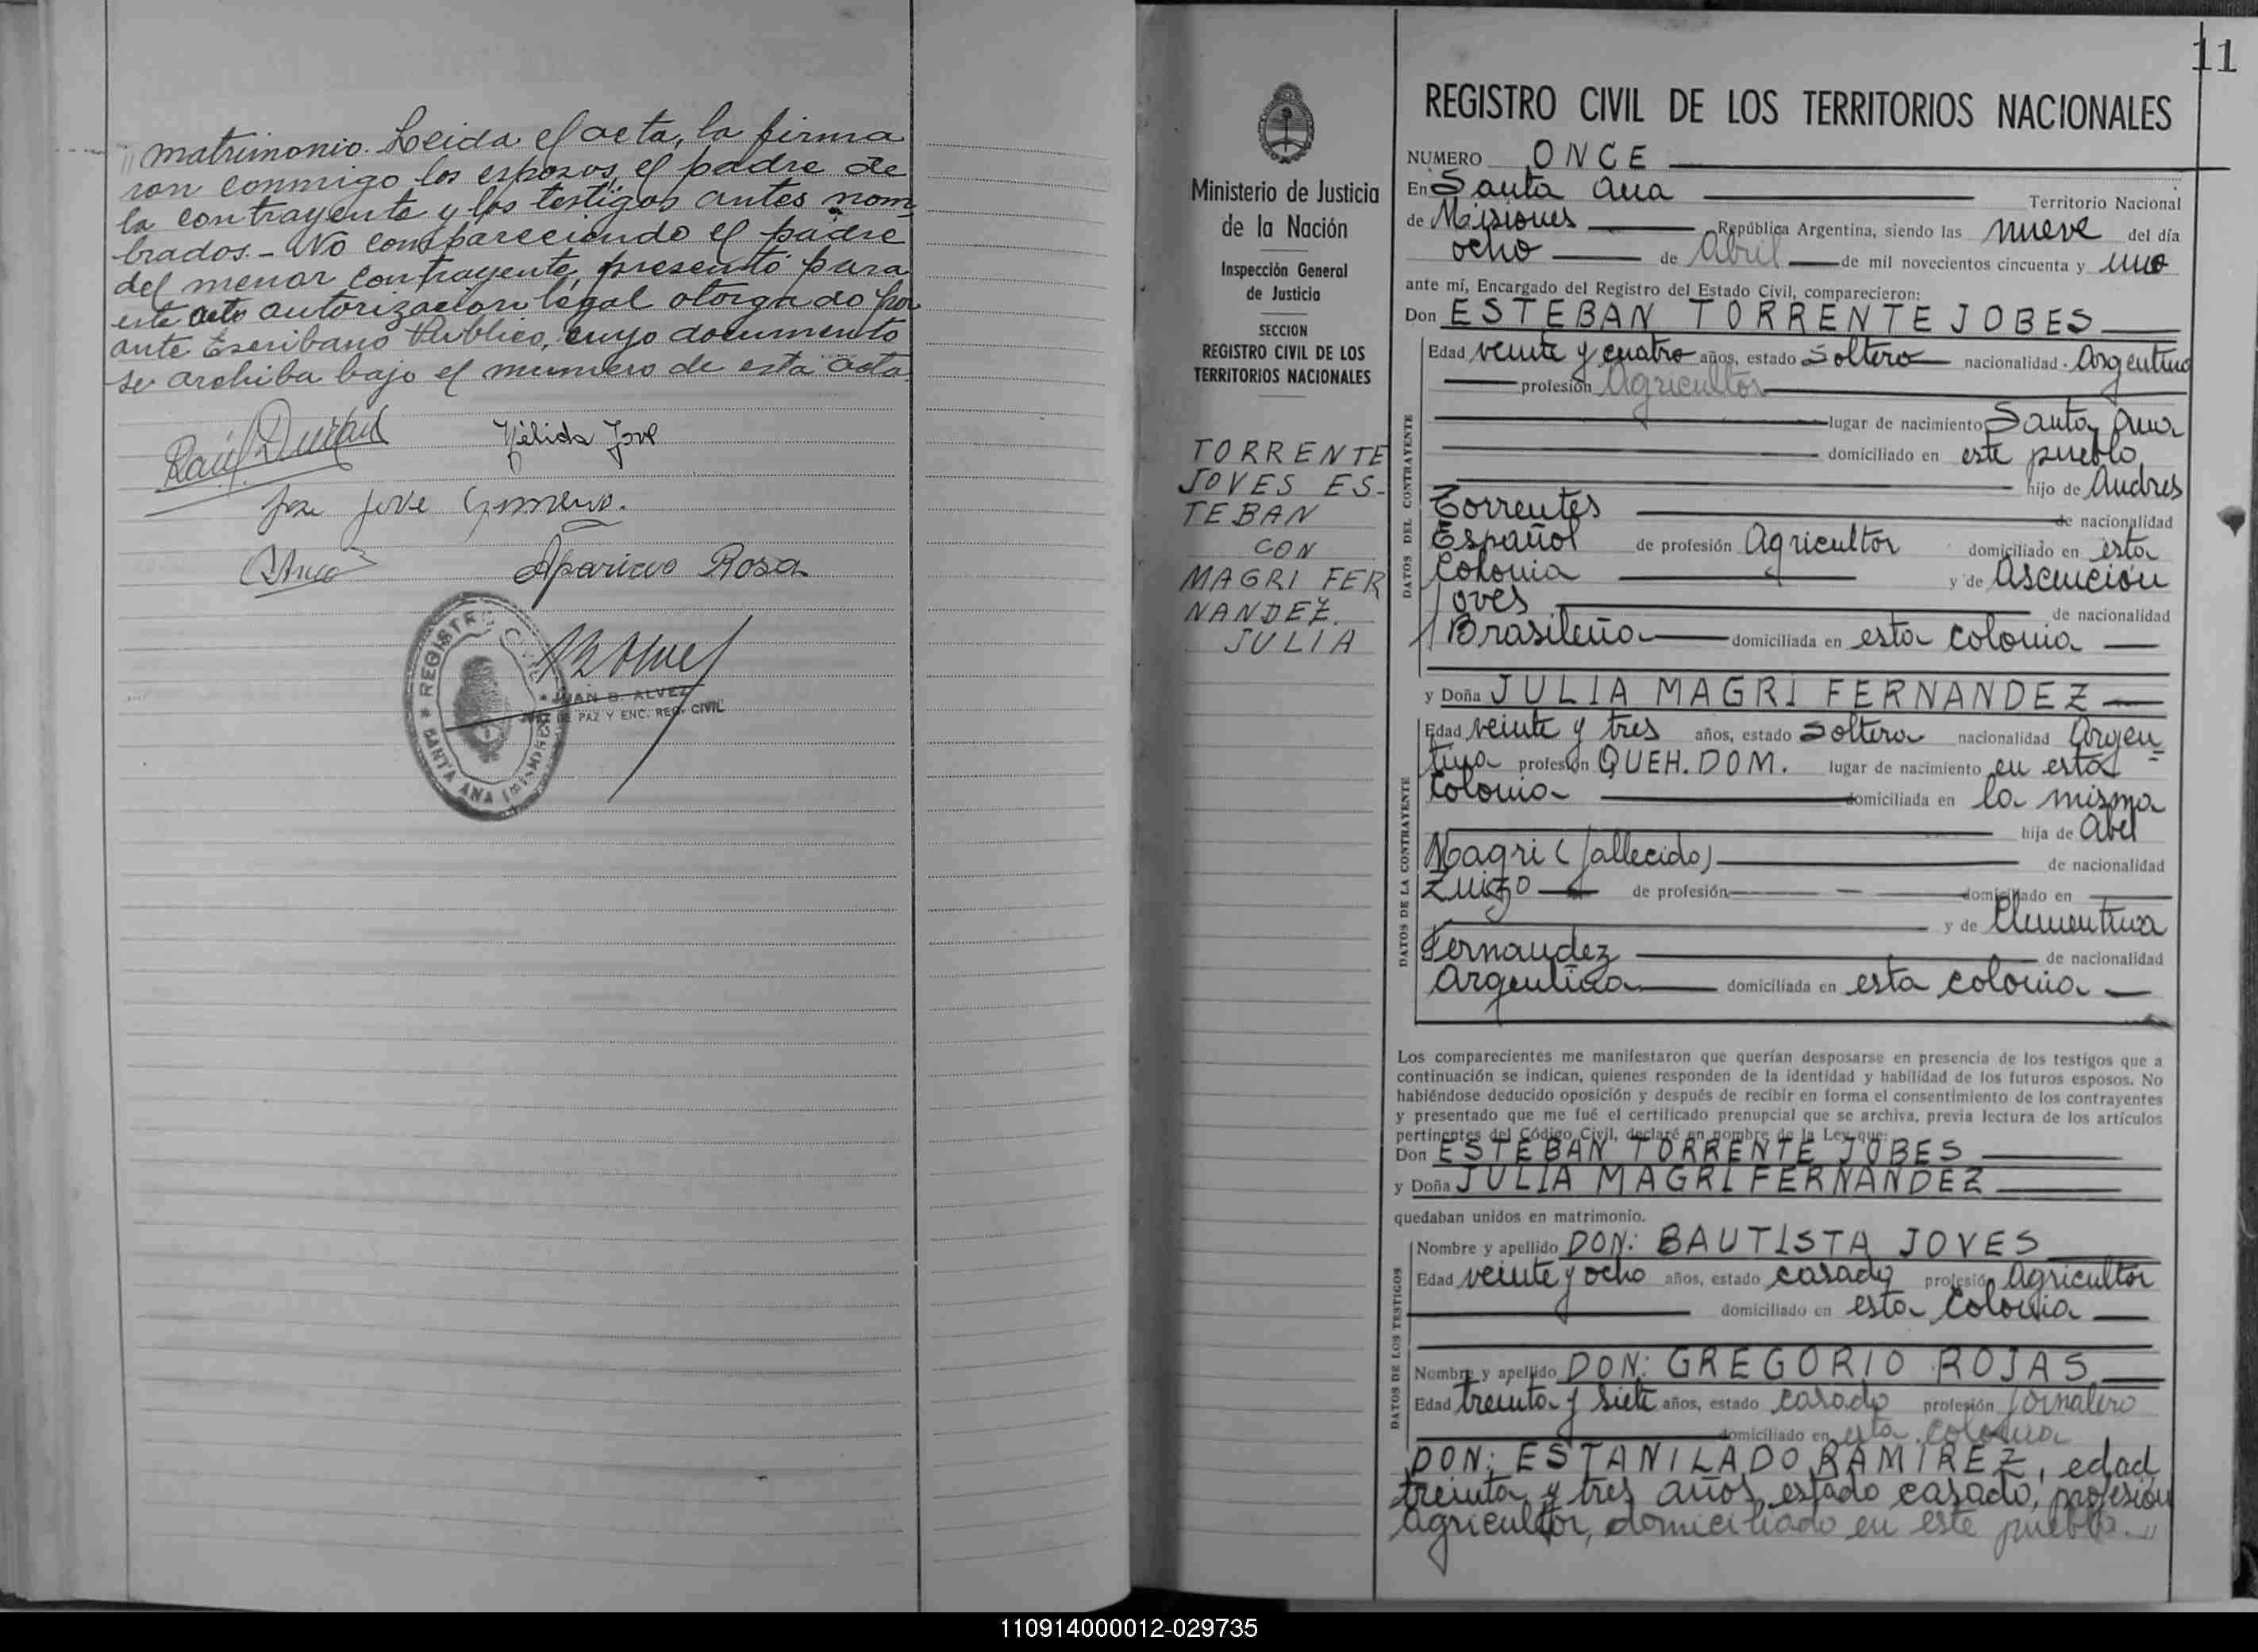 matrimonio. Leida el acta, la firma
ron conmigo los esposos, el padre de
la contrayente y los testigos antes nom
brados.- No compareciendo el padre
del menor contrayente, presentó para
este acto autorizacion legal otorgado por
ante Escribano Publico, cuyo documento
se archiba bajo el numero de esta acta.
Raúl Durán
Nélida Jove
Jose Jove Gimeno.
Aparicio Rosa
REGISTRO
SANTA ANA (MISIONES)
JUAN B. ALVEZ
JUEZ DE PAZ Y ENC. REG. CIVIL
11
Ministerio de Justicia
de la Nación
Inspección General
de Justicia
SECCION
REGISTRO CIVIL DE LOS
TERRITORIOS NACIONALES
TORRENTE
JOVES ES-
TEBAN
CON
MAGRI FER
NANDEZ.
JULIA
REGISTRO CIVIL DE LOS TERRITORIOS NACIONALES
NUMERO ONCE
En Santa Ana Territorio Nacional
de Misiones República Argentina, siendo las nueve del día
ocho de Abril de mil novecientos cincuenta y uno
ante mí, Encargado del Registro del Estado Civil, comparecieron:
Don ESTEBAN TORRENTE JOBES
DATOS DEL CONTRAYENTE
Edad veinte y cuatro años, estado Soltero nacionalidad Argentino
profesión Agricultor
lugar de nacimiento Santa Ana
domiciliado en este pueblo
hijo de Andres
Torrentes de nacionalidad
Español de profesión Agricultor domiciliado en esta
Colonia y de Ascención
Joves de nacionalidad
Brasileña domiciliada en esta colonia
y Doña JULIA MAGRI FERNANDEZ
DATOS DE LA CONTRAYENTE
Edad veinte y tres años, estado Soltera nacionalidad Argen
tina profesión QUEH. DOM. lugar de nacimiento en esta
Colonia domiciliada en la misma
hija de Abel
Magri (fallecido) de nacionalidad
Zuizo de profesión domiciliado en
y de Clementina
Fernandez de nacionalidad
Argentina domiciliada en esta colonia
Los comparecientes me manifestaron que querían desposarse en presencia de los testigos que a
continuación se indican, quienes responden de la identidad y habilidad de los futuros esposos. No
habiéndose deducido oposición y después de recibir en forma el consentimiento de los contrayentes
y presentado que me fué el certificado prenupcial que se archiva, previa lectura de los artículos
pertinentes del Código Civil, declaré en nombre de la Ley que:
Don ESTEBAN TORRENTE JOBES
y Doña JULIA MAGRI FERNANDEZ
quedaban unidos en matrimonio.
DATOS DE LOS TESTIGOS
Nombre y apellido DON: BAUTISTA JOVES
Edad veinte y ocho años, estado casado profesión Agricultor
domiciliado en esta Colonia
Nombre y apellido DON: GREGORIO ROJAS
Edad treinta y siete años, estado casado profesión Jornalero
domiciliado en esta colonia
DON: ESTANILADO RAMIREZ, edad
treinta y tres años, estado casado, profesión
agricultor, domiciliado en este pueblo.-//
110914000012-029735